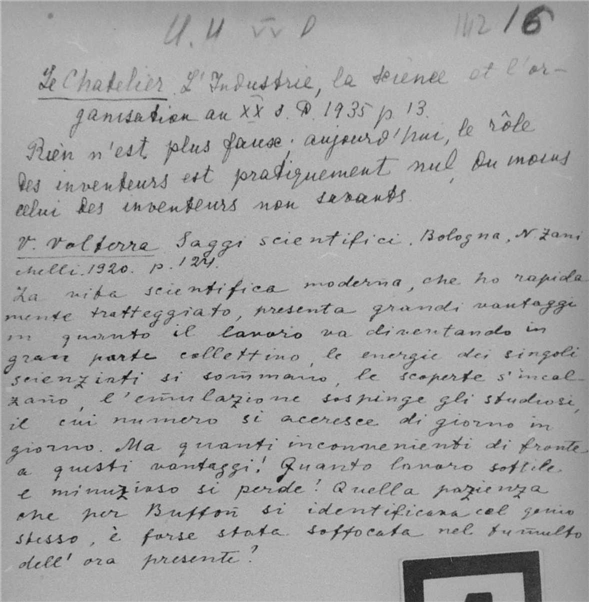 16
Le Chatelier. L'Industrie, la science et l'or-
ganisation au XX s. P. 1935 p. 13.
Rien n'est plus faux: aujourd'hui, le rôle
des inventeurs est pratiquement nul, du moins
celui des inventeurs non savants.
V. Volterra Saggi scientifici. Bologna, N. Zani
chelli. 1920. p. 124.
La vita scientifica moderna, che ho rapida
mente tratteggiato, presenta grandi vantaggi
in quanto il lavoro va diventando in
gran parte collettivo, le energie dei singoli
scienziati si sommano, le scoperte s'incal-
zano, l'emulazione sospinge gli studiosi,
il cui numero si accresce di giorno in
giorno. Ma quanti inconvenienti di fronte
a questi vantaggi! Quanto lavoro sottile
e minuzioso si perde! Quella pazienza
che per Buffon si identificava col genio
stesso, è forse stata soffocata nel tumulto
dell'ora presente?